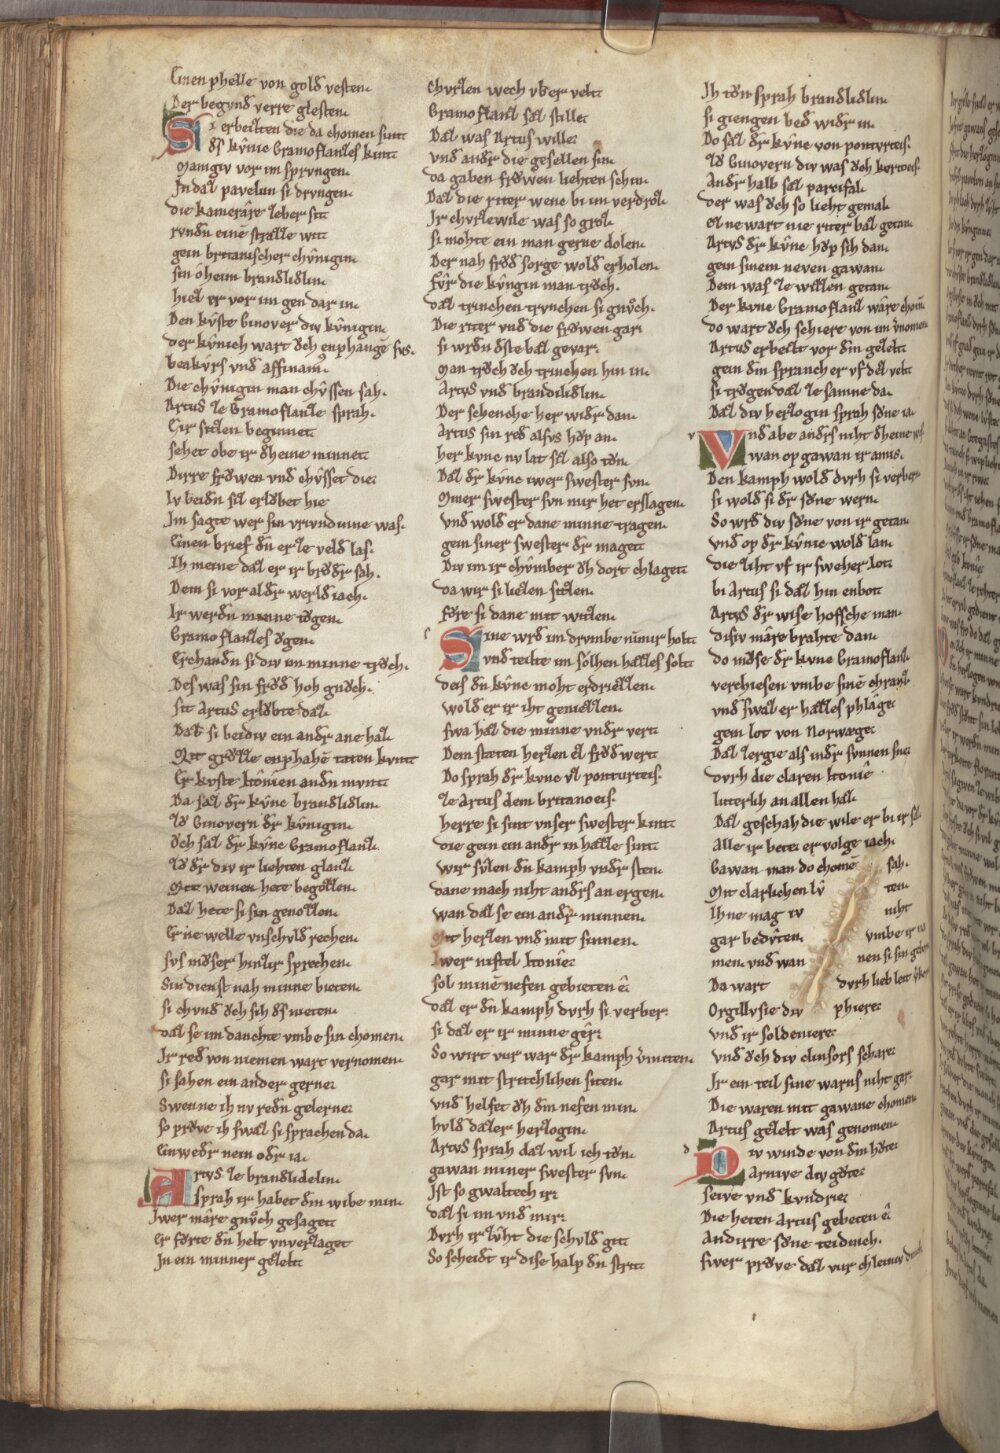 Einen phelle von gold vesten.
Der begvnd verre glesten.
Si erbeitten die da chomen sint
dͦs kv̂nic Gramoflanzes kint.
Manigiv vor im sprvngen.
Jn daz pavelun si drvngen.
die kamerâre leber sit
rvnden eine strazze wit
gein britanischer chv̂nigin.
sin ôheim brandlidlin.
hiez er vor im gen dar in.
Den kv̂ste Ginover div kv̂nigin.
der kv̂nich wart ôch enphangē svs.
beakvrs vnd affinam.
Die chv̂nigin man chv̂ssen sah.
Artvs ze Gramoflanze sprah.
E ir sitzen beginnet.
sehet obe ir dheine minnet.
Dirre frôwen vnd chv̂sset die.
Jv beidn sil erlôbet hie
Jm sagte wer sin vrivndinne was.
Einen brief dn er ze veld las.
Jh meine daz er ir brôdr sah.
Dem si vor al dr werld iach.
Jr werdn minne tôgen.
Gramoflanzes ôgen.
Erchandn si div im minne trôch.
Des was sin frôd hoh gnôch.
sit Artvs erlôbte daz.
Daz si beidiv ein andr ane haz.
Mit grôzze enphahē taten kvnt
Er kvste Jtônien andn mvnt
Da saz dr kv̂ne brandlidlin.
zô Ginovern dr kv̂nigin.
ôch saz dr kv̂ne Gramoflanz.
zô dr div ir liehten glanz.
Mit weinen hete begozzen.
Daz hete si sin genozzen.
Er ne welle vnschvld rechen.
svs môser hinzir sprechen.
Sin dienst nah minne bieten.
si chvnd ôch sih ds nieten.
daz se im danchte vmbe sin chomen.
Jr red von niemen wart vernomen.
si sahen ein ander gerne.
Swenne ih nv redn gelerne.
so prôve ih swaz si sprachen da.
Einwedr nein odr ia.
Artvs ze brandlidelin.
sprah ir habet dim wibe min.
Jwer mâre gnv̂ch gesaget.
Er fôrte dn helt vnverzaget
Jn ein minner gezelt.
Chvrzen wech vber velt
Gramoflanz saz stille.
Daz was Artus wille.
vnd andr die gesellen sin.
da gaben frôwen liehten schin.
Daz die riter wene bi im verdroz.
Jr chvrzewile was so groz.
si mohte ein man gerne dolen.
Der nah frôd sorge wold erholen.
fv̂r die kv̂ngin man trôch.
daz trinchen trvnchen si gnv̂ch.
Die riter vnd die frôwen gar.
si wrdn dste baz gevar.
Man trôch ôch trinchen hin in.
Artvs vnd brandilidlin.
Der schenche her widr dan.
Artus sin red alsvs hôp an.
her kvne nv lat siz also tôn.
Daz dr kv̂ne iwer swester svn.
Miner swester svn mir het erslagen.
vnd wold er dane minne tragen.
gein siner swester dr maget
Div im ir chv̂mber ôh dort chlaget
da wir si liezen sitzen.
fôre si dane mit witzen.
Sine wrd im drvmbe nimir holt.
vnd teilte im sôlhen hazzes solt
dets dn kv̂ne moht erdriezzen.
wold er ir iht geniezzen.
swa haz die minne vndr vert.
Dem stæten herzen ez frôd wert.
Do sprah dr kvne vz ponturteis.
ze Artus dem britaneois.
herre si sint vnser swester kint.
die gein ein andr in hazze sint.
wir sv̂len dn kamph vndr sten.
dane mach niht andrs an ergen.
wan daz se ein andr minnen.
Mit herzen vnd mit sinnen.
Jwer niftel Jtonie.
sol minē nefen gebieten ê.
daz er dn kamph dvrh si verber.
si daz er ir minne gêr.
So wirt vur war dr kamph v̂miten.
gar mit stritlichen siten.
vnd helfet ôh dim nefen min.
hvld daz er herzogin.
Artvs sprah daz wil ich tôn.
gawan miner swester svn.
Jst so gwaltech ir.
daz si im vnd mir.
Dvrh ir zv̂ht die schvld git.
So scheidt ir dise halp dn strit
Jh tôn sprah brandlidlin.
si giengen bed widr in.
Do saz dr kv̂ne von ponturteis.
zô Ginovern div was ôch kurteis.
Andr halb saz parcifal.
der was ôch so lieht gemal.
ez ne wart nie riter baz getan
Artvs dr kv̂ne hôp sih dan.
gein sinem neven gawan.
Dem was ze willen getan.
Der kvne Gramoflanz wâre chom̄
do wart ôch schiere von im v̂nomen
Artus erbeizt vor din gezelt.
gein dim spranch er vf dez velt
si trôgen daz ze samne da.
Daz div herzogin sprah sône ia.
Vnd abe andrs niht dheine wis.
wan op gawan ir amis.
Den kamph wold dvrh si verbern
si wold si dr sône wern.
So wrd div sône von ir getan
vnd op dr kv̂nic wold lan
die ziht vf ir sweher Lot.
bi Artus si daz hin enbot.
Artvs dr wise hoffsche man
disiv mâre brahte dan.
do môse dr kvne Gramoflanz
verchiesen vmbe sinē chranz
vnd swaz er hazzes phlâge.
gein Lot von Norwæge.
Daz zergie als indr svnnen sne
dvrh die claren Jtonie
litterlih an allen haz.
Daz geschah die wile er bi ir saz
Alle ir bete er volge iach.
Gawan man do chomē sah.
Mit clarlichen lv̂ ten.
Jh ne mag iv niht
gar bedv̂ten. vmbe ir
men vnd wan nen si sin
Da wart dvrh lieb leit
Orgillvsie div phiere.
vnd ir soldeniere.
vnd ôch div clinsors schare.
Jr ein teil sine warns niht gar.
Die waren mit gawane chomen
Artus gezelt was genomen
Div winde von din hôte.
Arnive div gôte.
Seive vnd kvndrie.
Die heten Artus gebeten ê
An dirre sône teidinch.
swer prôve daz vur chleiniv